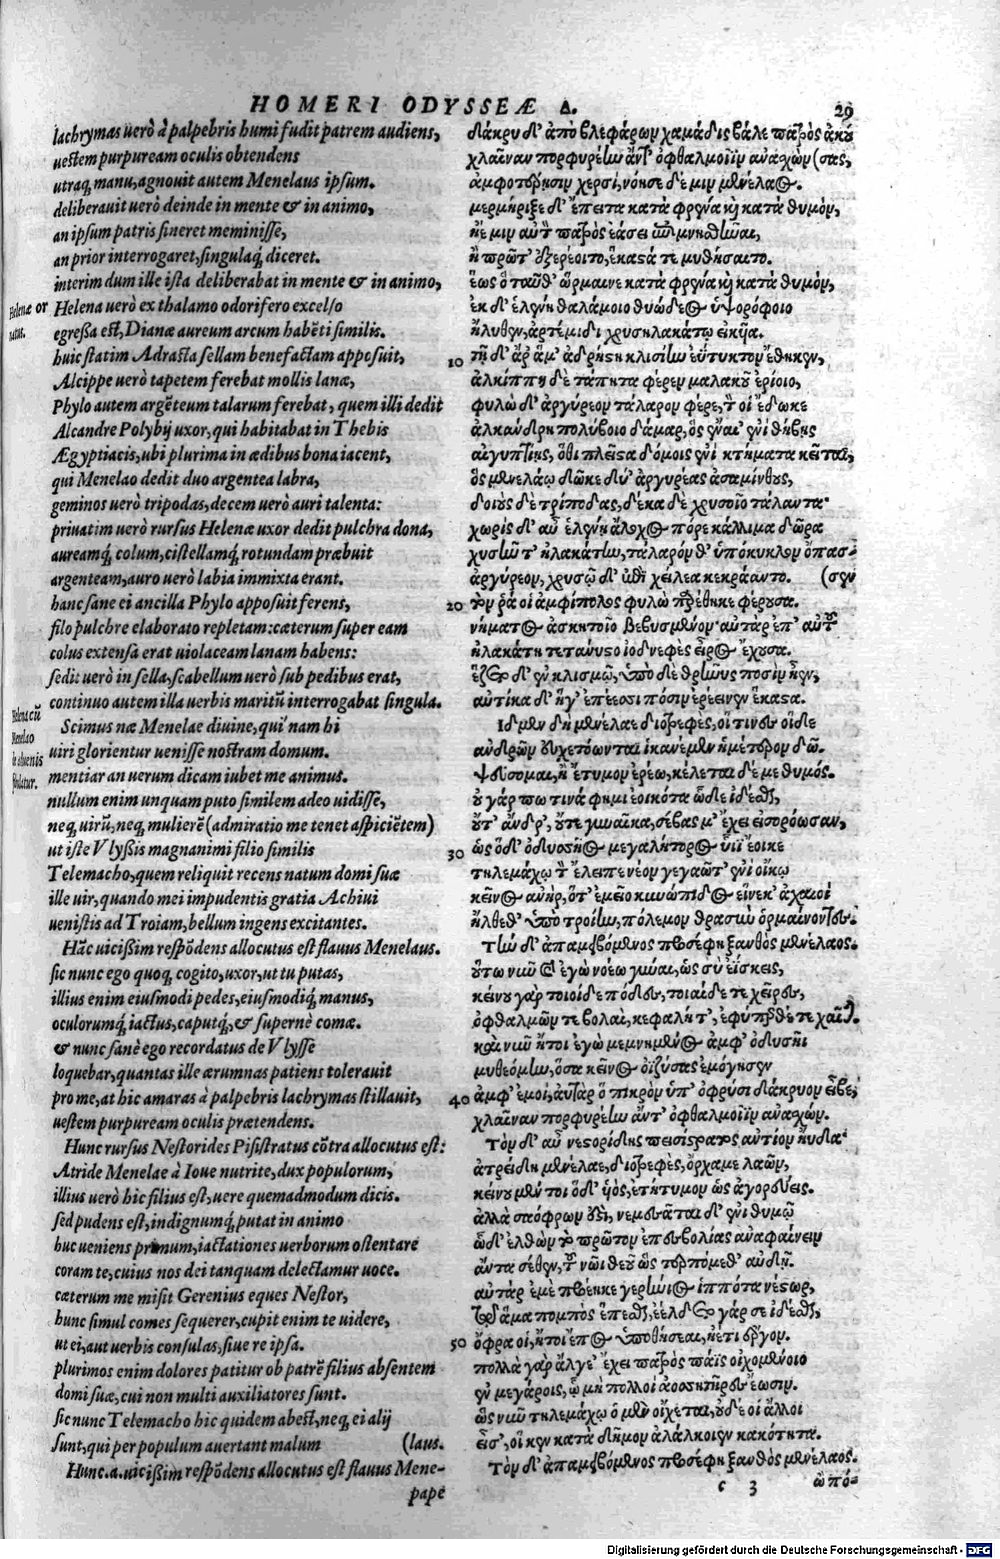 HOMERI ODYSSEÆ Δ. 29
lachrymas uerò à palpebris humi fudit patrem audiens,
uestem purpuream oculis obtendens
utraq; manu, agnouit autem Menelaus ipsum.
deliberauit uerò deinde in mente & in animo,
an ipsum patris sineret meminisse,
an prior interrogaret, singulaq́; diceret.
interim dum ille ista deliberabat in mente & in animo,
Helenæ or
natus.
Helena uerò ex thalamo odorifero excelso
egressa est, Dianæ aureum arcum habẽti similis.
huic statim Adrasta sellam benefactam apposuit,
Alcippe uerò tapetem ferebat mollis lanæ,
Phylo autem argẽteum talarum ferebat, quem illi dedit
Alcandre Polybij uxor, qui habitabat in Thebis
Ægyptiacis, ubi plurima in ædibus bona iacent,
qui Menelao dedit duo argentea labra,
geminos uerò tripodas, decem uerò auri talenta:
priuatim uerò rursus Helenæ uxor dedit pulchra dona,
aureamq́; colum, cistellamq́; rotundam præbuit
argenteam, auro uerò labia immixta erant.
hanc sane ei ancilla Phylo apposuit ferens,
filo pulchre elaborato repletam: cæterum super eam
colus extensa erat uiolaceam lanam habens:
sedit uerò in sella, scabellum uerò sub pedibus erat,
continuo autem illa uerbis maritũ interrogabat singula.
Helena cũ
Menelao
de aduenis
fabulatur.
Scimus næ Menelae diuine, qui nam hi
uiri glorientur uenisse nostram domum.
mentiar an uerum dicam iubet me animus.
nullum enim unquam puto similem adeo uidisse,
neq; uirũ, neq; mulierẽ (admiratio me tenet aspiciẽtem)
ut iste Vlyssis magnanimi filio similis
Telemacho, quem reliquit recens natum domi suæ
ille uir, quando mei impudentis gratia Achiui
uenistis ad Troiam, bellum ingens excitantes.
Hãc uicissim respõdens allocutus est flauus Menelaus.
sic nunc ego quoq; cogito, uxor, ut tu putas,
illius enim eiusmodi pedes, eiusmodiq́; manus,
oculorumq́; iactus, caputq́;, & supernè comæ.
& nunc sanè ego recordatus de Vlysse
loquebar, quantas ille ærumnas patiens tolerauit
pro me, at hic amaras à palpebris lachrymas stillauit,
uestem purpuream oculis prætendens.
Hunc rursus Nestorides Pisistratus cõtra allocutus est:
Atride Menelae à Ioue nutrite, dux populorum,
illius uerò hic filius est, uere quemadmodum dicis.
sed pudens est, indignumq́; putat in animo
huc ueniens primum, iactationes uerborum ostentare
coram te, cuius nos dei tanquam delectamur uoce.
cæterum me misit Gerenius eques Nestor,
hunc simul comes sequerer, cupit enim te uidere,
ut ei, aut uerbis consulas, siue re ipsa.
plurimos enim dolores patitur ob patrẽ filius absentem
domi suæ, cui non multi auxiliatores sunt.
sic nunc Telemacho hic quidem abest, neq; ei alij
sunt, qui per populum auertant malum (laus.
Hunc.a.uicissim respõdens allocutus est flauus Mene-
pape
δάκρυ δ' ἀπὸ βλεφάρων χαμάδις βάλε πατρὸς ἀκού
χλαῖναν πορφυρέην ἄντ' ὀφθαλμοῖϊν ἀνασχὼν (σας,
ἀμφοτέρῃσιν χερσί, νόησε δέ μιν μενέλαος.
μερμήριξε δ' ἔπειτα κατὰ φρένα καὶ κατὰ θυμὸν,
ἠέ μιν αὐτὸν πατρὸς ἐάσει ἐπιμνησθῆναι,
ἢ πρῶτ' ἐξερέοιτο, ἕκαστά τε μυθήσαιτο.
ἕως ὁ ταῦθ' ὥρμαινε κατὰ φρένα καὶ κατὰ θυμὸν,
ἐκ δ' ἑλένη θαλάμοιο θυώδεος ὑψορόφοιο
ἤλυθεν, ἀρτέμιδι χρυσηλακάτῳ εἰκῆα.
10 τῇ δ' ἄρ' ἅμ' ἀδρήστη κλισίην εὔτυκτον ἔθηκεν,
ἀλκίππη δὲ τάπητα φέρεν μαλακοῦ ἐρίοιο,
φυλὼ δ' ἀργύρεον τάλαρον φέρε, τόν οἱ ἔδωκε
ἀλκάνδρη πολύβοιο δάμαρ, ὃς ἔναι' ἐνὶ θήβῃς
αἰγυπτίῃς, ὅθι πλεῖστα δόμοις ἐνὶ κτήματα κεῖται,
ὃς μενελάῳ δῶκε δύ' ἀργυρέας ἀσαμίνθους,
δοιοὺς δὲ τρίποδας, δέκα δὲ χρυσοῖο τάλαντα·
χωρὶς δ' αὖ ἑλένῃ ἄλοχος πόρε κάλλιμα δῶρα
χυσῆν τ' ἠλακάτην, τάλαρόν θ' ὑπόκυκλον ὄπασ-
ἀργύρεον, χρυσῷ δ' ἐπὶ χείλεα κεκράαντο. (σεν
20 τόν ῥά οἱ ἀμφίπολος φυλὼ παρέθηκε φέρουσα.
νήματος ἀσκητοῖο βεβυσμένον· αὐτὰρ ἐπ' αὐτῷ
ἠλακάτη τετάνυστο ἰοδνεφὲς εἶρος ἔχουσα.
ἕζετο δ' ἐν κλισμῷ, ὑπὸ δὲ θρῆνυς ποσὶν ἦεν,
αὐτίκα δ' ἥγ' ἐπέεσσι πόσιν ἐρέεινεν ἕκαστα.
Ἴδμεν δὴ μενέλαε διοτρεφὲς, οἵ τινες οἵδε
ἀνδρῶν εὐχετόωνται ἱκανέμεν ἡμέτερον δῶ.
ψεύσομαι, ἢ ἔτυμον ἐρέω, κέλεται δέ με θυμός.
οὐ γάρ πω τινά φημι ἐοικότα ὧδε ἰδέσθαι,
οὔτ' ἄνδρ', οὔτε γυναῖκα, σέβας μ' ἔχει εἰσορόωσαν,
30 ὡς ὅδ' ὀδυσσῆος μεγαλήτορος υἷϊ ἔοικε
τηλεμάχῳ τὸν ἔλειπε νέον γεγαῶτ' ἐνὶ οἴκῳ
κεῖνος ἀνὴρ, ὅτ' ἐμεῖο κυνώπιδος εἵνεκ' ἀχαιοὶ
ἤλθεθ' ὑπὸ τροίην, πόλεμον θρασὺν ὁρμαίνοντες.
Τὴν δ' ἀπαμειβόμενος προσέφη ξανθὸς μενέλαος.
οὕτω νῦν καὶ ἐγὼ νοέω γύναι, ὡς σὺ ἐΐσκεις,
κείνου γὰρ τοιοίδε πόδες, τοιαίδε τε χεῖρες,
ὀφθαλμῶν τε βολαὶ, κεφαλή τ', ἐφύπερθέ τε χαῖται.
καὶ νῦν ἤτοι ἐγὼ μεμνημένος ἀμφ' ὀδυσῆι
μυθεόμην, ὅσα κεῖνος ὀϊζύσας ἐμόγησεν
40 ἀμφ' ἐμοί, αὐτὰρ ὁ πικρὸν ὑπ' ὀφρύσι δάκρυον εἶβε,
χλαῖναν πορφυρέην ἄντ' ὀφθαλμοῖϊν ἀνασχών.
Τὸν δ' αὖ νεστορίδης πεισίστρατος ἀντίον ηὔδα·
ἀτρείδη μενέλαε, διοτρεφὲς, ὄρχαμε λαῶν,
κείνου μέν τοι ὅδ' υἱός, ἐτήτυμον ὡς ἀγορεύεις.
ἀλλὰ σαόφρων ἐστὶ, νεμεσσᾶται δ' ἐνὶ θυμῷ
ὧδ' ἐλθὼν τὸ πρῶτον ἐπεσβολίας ἀναφαίνειν
ἄντα σέθεν, τοῦ νῶϊ θεοῦ ὣς τερπόμεθ' αὐδῇ.
αὐτὰρ ἐμὲ προέηκε γερήνιος ἱππότα νέστωρ,
τῷ ἅμα πομπὸς ἕπεσθαι, ἐέλδετο γάρ σε ἰδέσθαι,
50 ὄφρα οἱ, ἤτοι ἔπος ὑποθήσεαι, ἠέ τι ἔργον.
πολλὰ γὰρ ἄλγε' ἔχει πατρὸς πάϊς οἰχομένοιο
ἐν μεγάροις, ᾧ μὴ πολλοὶ ἀοσσητῆρες ἔωσιν.
ὣς νῦν τηλεμάχῳ ὁ μὲν οἴχεται, οὐδέ οἱ ἄλλοι
εἰσ', οἵ κεν κατὰ δῆμον ἀλάλκοιεν κακότητα.
Τὸν δ' ἀπαμειβόμενος προσέφη ξανθὸς μενέλαος.
c 3 ὢ πό-
Digitalisierung gefördert durch die Deutsche Forschungsgemeinschaft - DFG